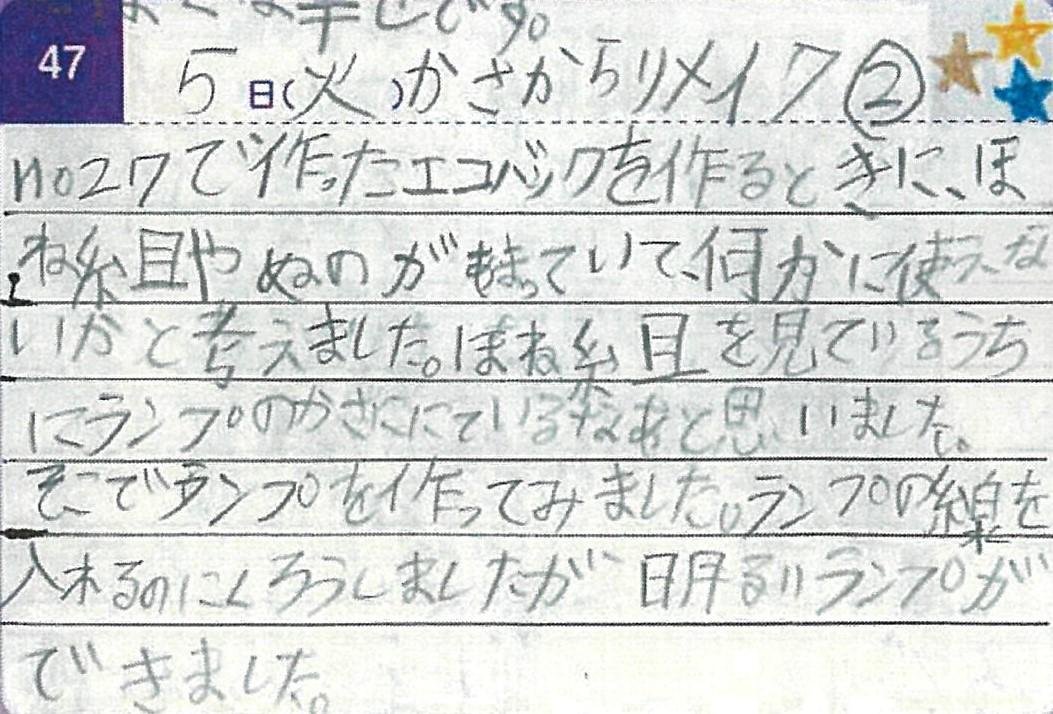 47
5日(火)かさからリメイク②
no27で作ったエコバックを作るときに、ほ
ね組やぬのが余っていて、何かに使えな
いかと考えました。ほね組を見ているうち
にランプのかさににているなあと思いました。
そこでランプを作ってみました。ランプの線を
入れるのにくろうしましたが明るいランプが
できました。